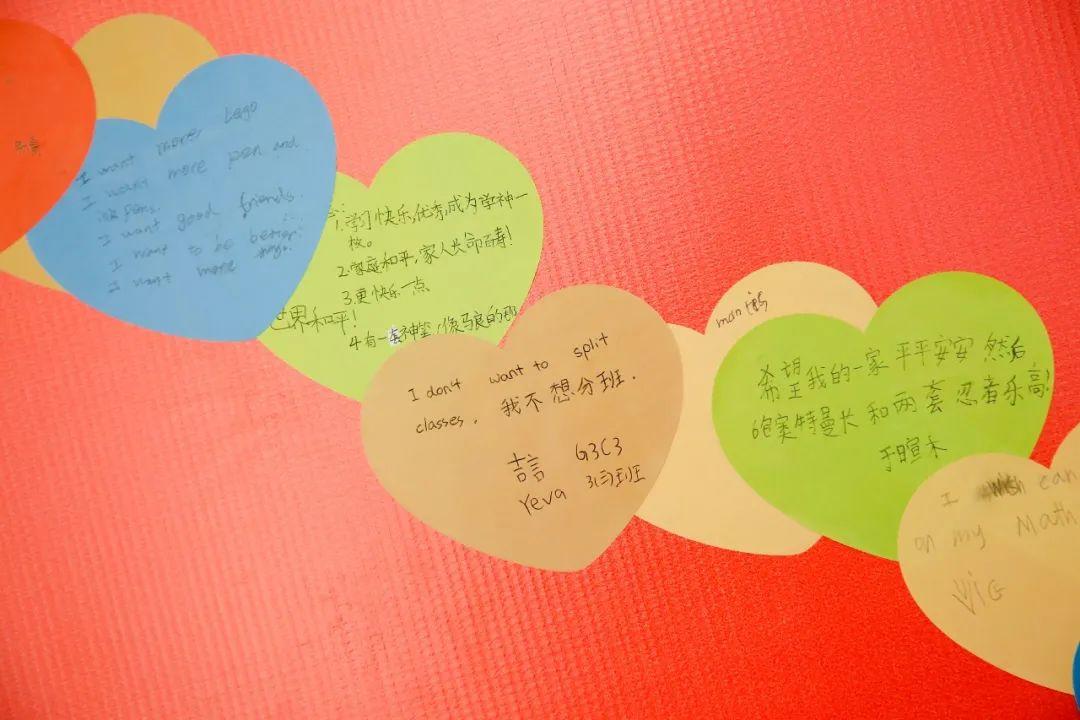 I want more Lego
I want more pen and
ink pens.
I want good friends.
I want to be better.
I want more
1.学习快乐,优秀,成为学神一
枚。
2.家庭和平,家人长命百寿!
3.更快乐一点
4.有一套神笔,像马良的那
世界和平!
I don't want to split
classes. 我不想分班.
喆 G3C3
Yeva 3(3)班
man
希望我的一家平平安安 然后
跑 奥特曼卡和两套忍者乐高!
于暄木
I wish can
on my Math
Vic